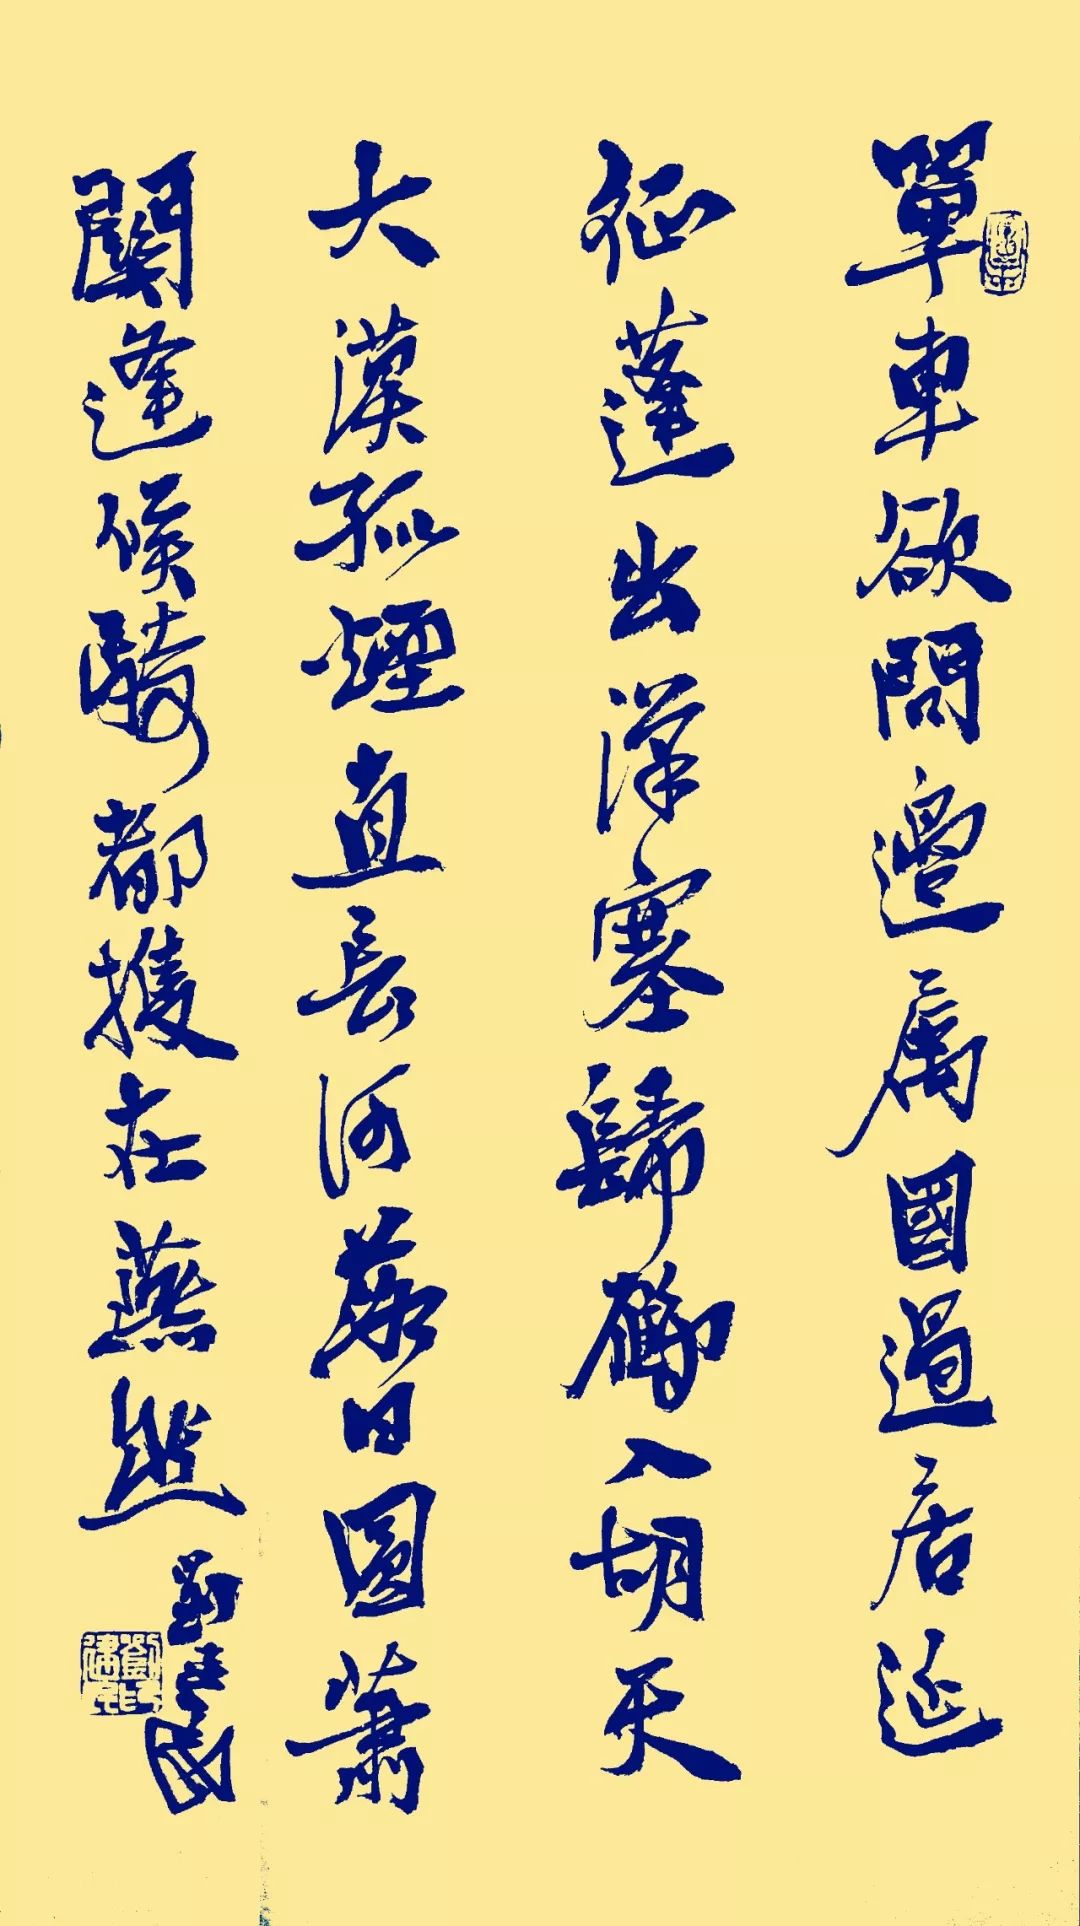 單車欲問邊屬國過居延
征蓬出漢塞歸雁入胡天
大漠孤煙直長河落日圓蕭
關逢候騎都護在燕然
劉建民
劉建民印